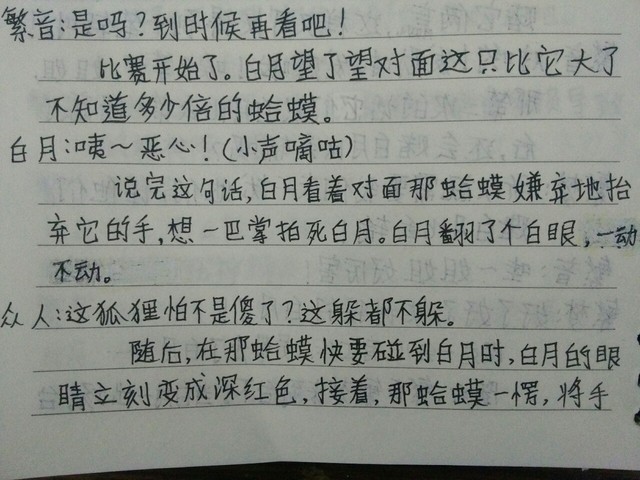 繁音:是吗?到时候再看吧!
比赛开始了。白月望了望对面这只比它大了
不知道多少倍的蛤蟆。
白月:咦~恶心!(小声嘀咕)
说完这句话,白月看着对面那蛤蟆嫌弃地抬
弃它的手,想一巴掌拍死白月。白月翻了个白眼,一动
不动。
众人:这狐狸怕不是傻了?这躲都不躲。
随后,在那蛤蟆快要碰到白月时,白月的眼
睛立刻变成深红色,接着,那蛤蟆一愣,将手